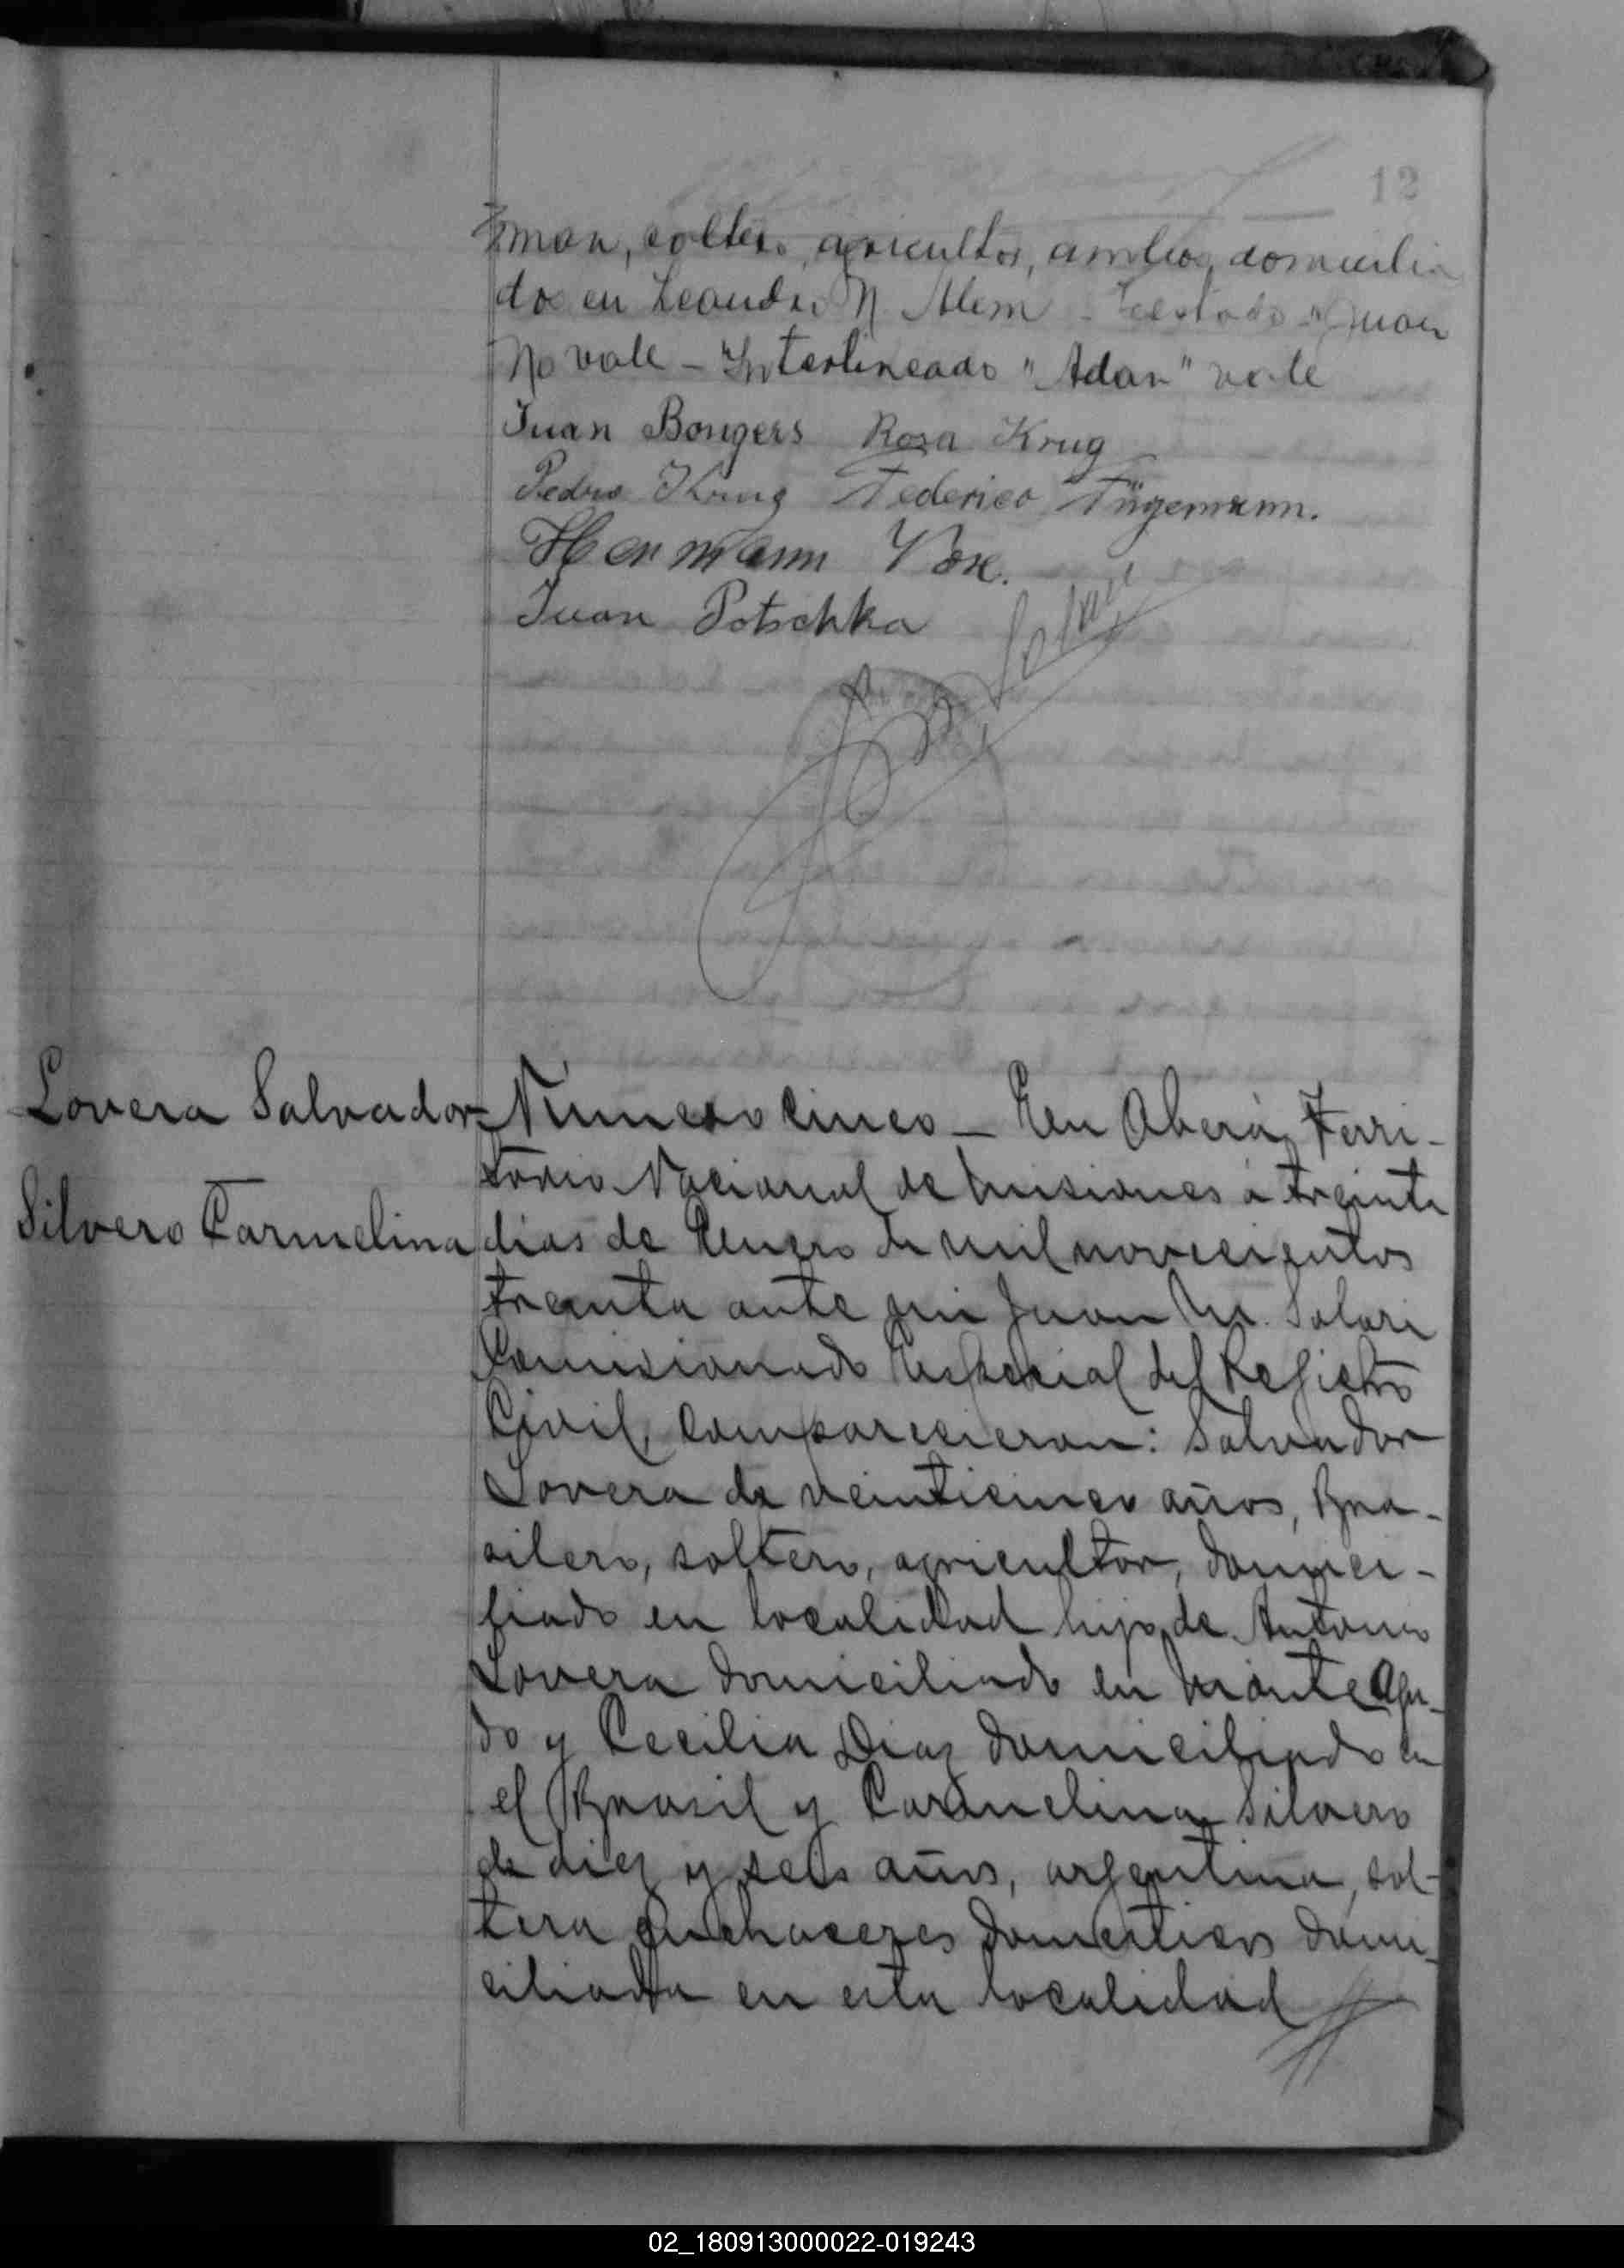 12
man, soltero, agricultor, ambos, domicilia
dos en Leandro N. Alem - Testado "Juan
No vale - Interlineado "Adan" vale
Juan Bongers Rosa Krug
Pedro Krug Federico Tügemann.
Hermann Vox.
Juan Potschka
Lovera Salvador
Silvero Carmelina
Número cinco - En Oberá, Terri-
torio Nacional de Misiones á treinta
dias de Enero de mil novecientos
treinta ante mi Juan M. Solari
Comisionado Especial del Registro
Civil, comparecieron: Salvador
Lovera de veinticinco años, Bra-
silero, soltero, agricultor, domici-
liado en localidad hijo de Antonio
Lovera domiciliado en Monte Agu-
do y Cecilia Diaz domiciliado en
el Brasil y Carmelina Silvero
de diez y seis años, argentina, sol-
tera quehaceres domesticos domi-
ciliada en esta localidad
02_180913000022-019243